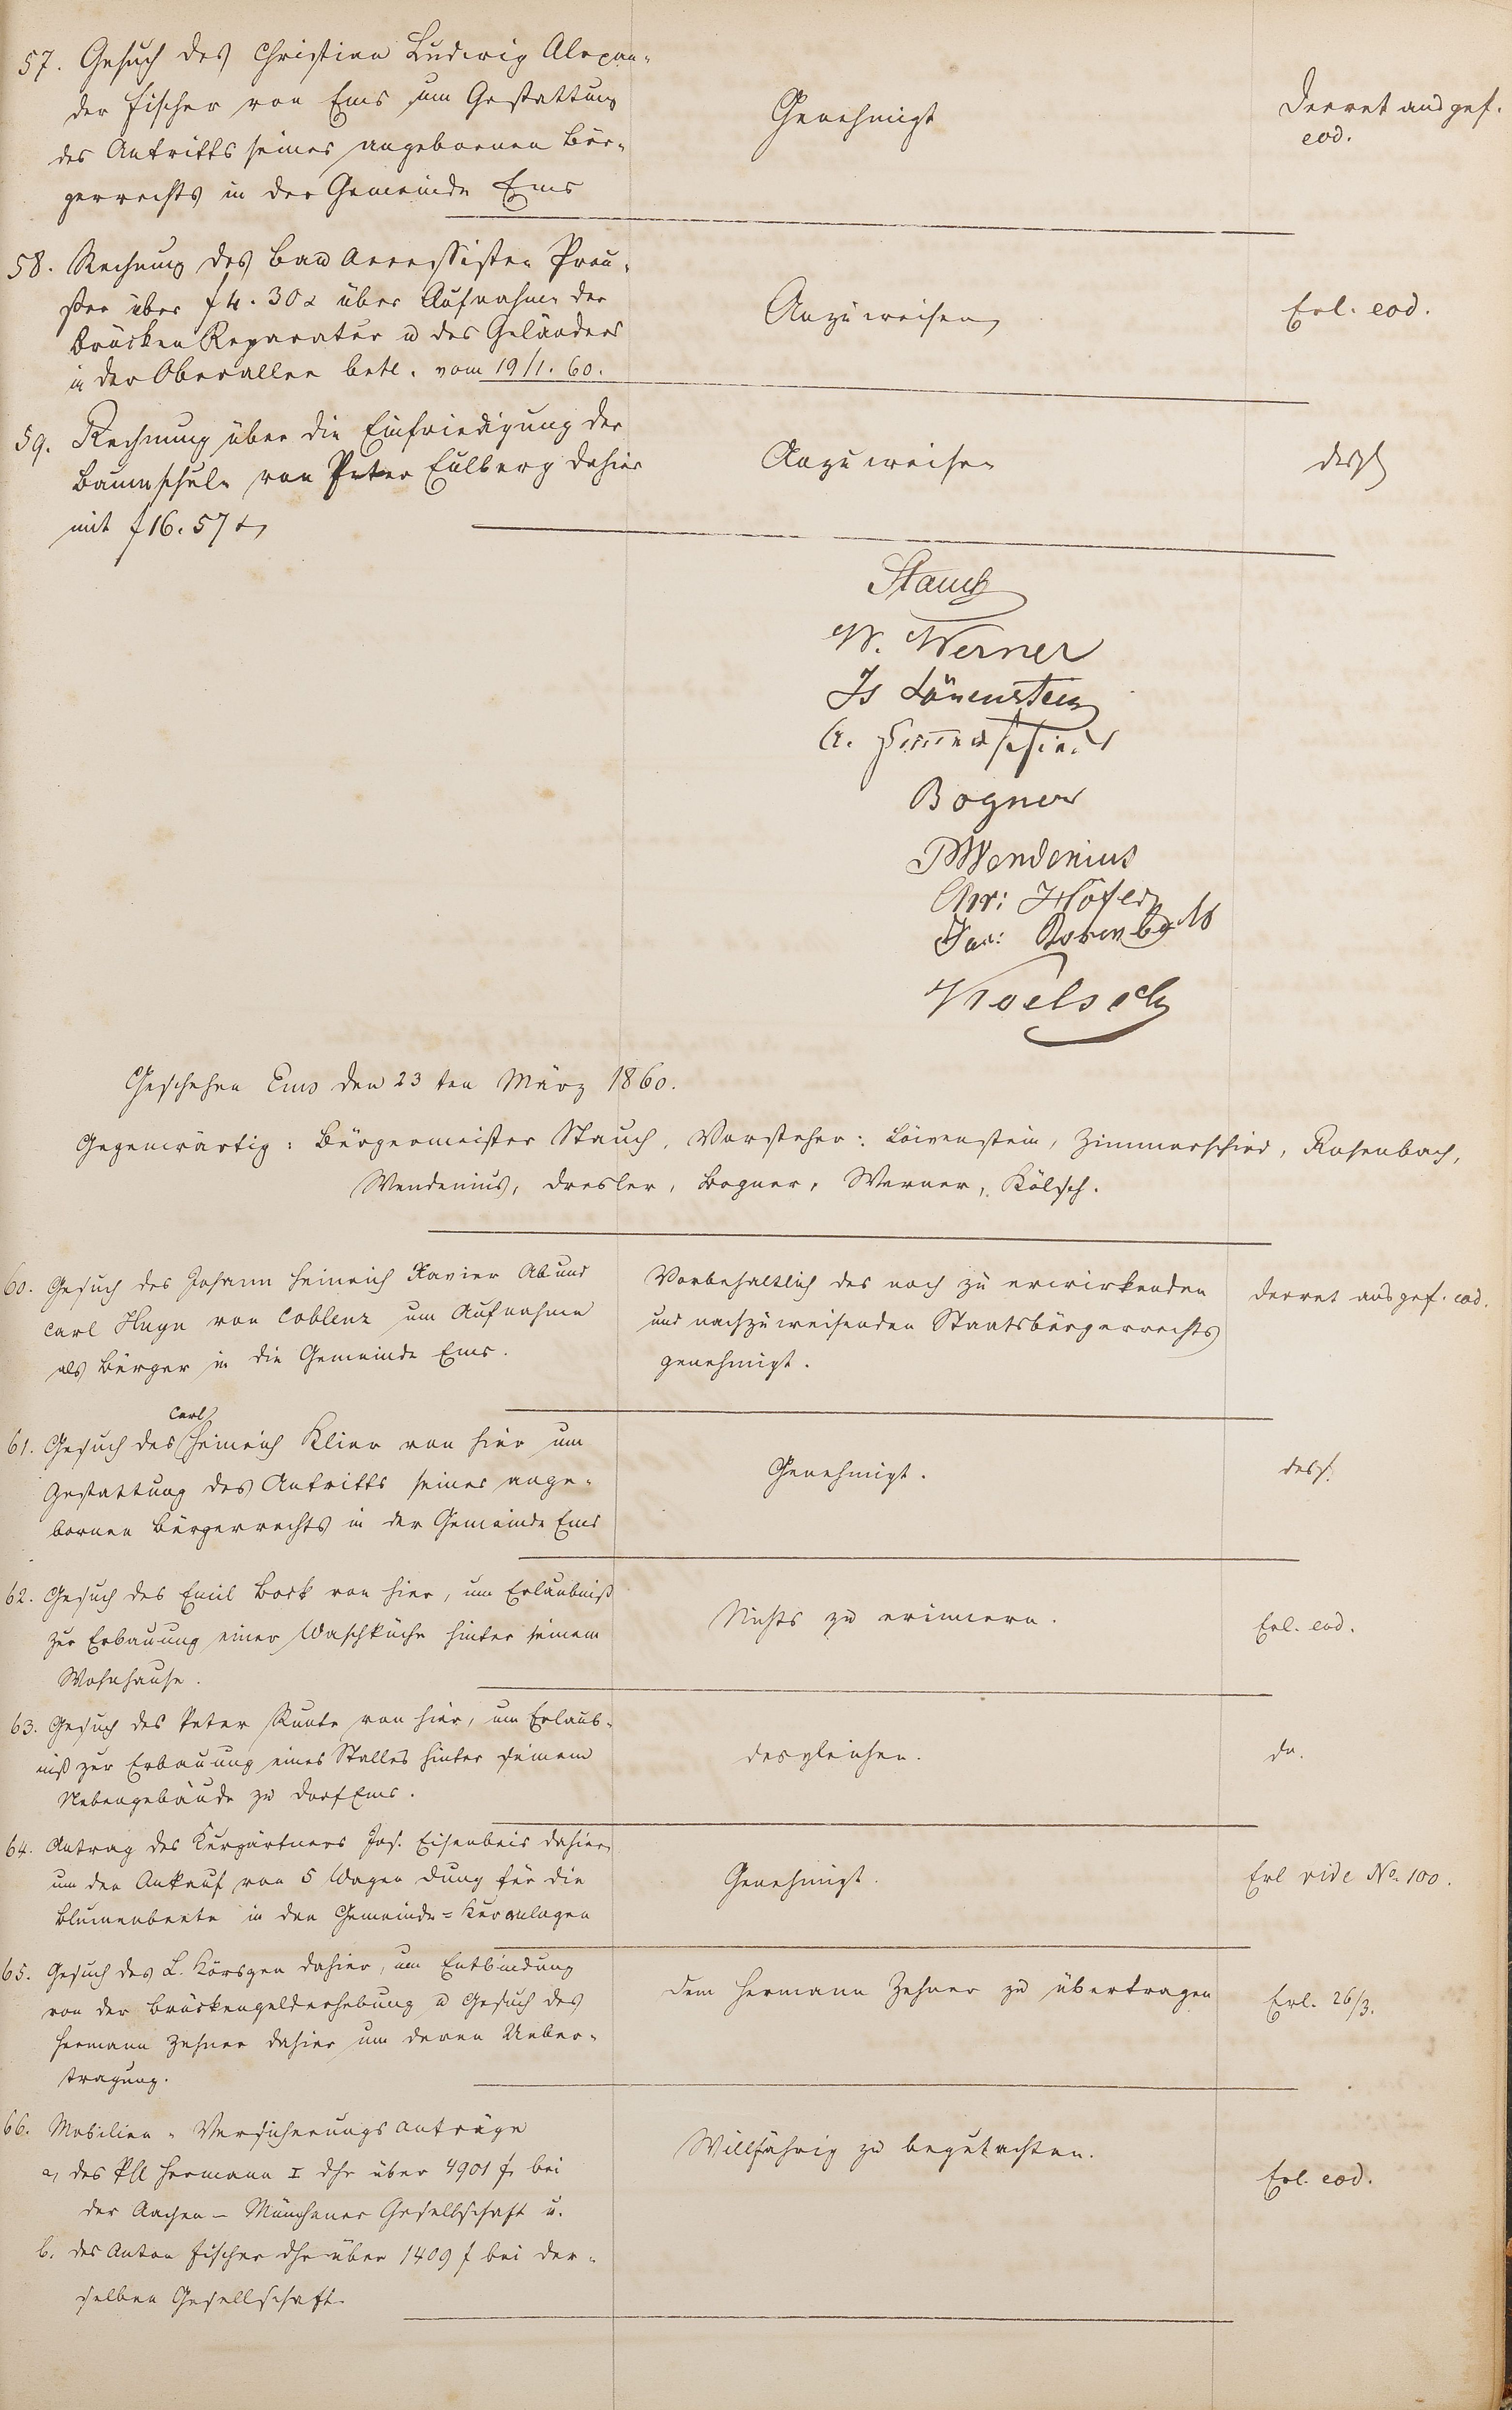 57. Gesuch des Christian Ludwig Alexan-
der Fischer von Ems um Gestattung
des Antritts seines angebornen Bür-
gerrechts in der Gemeinde Ems
Genehmigt
Decret ausgef.
eod.
58. Rechnung des Bau Accessisten Preu-
ßer über f 4. 30 x über Aufnahme der
Brücken Reparatur u des Geländers
in der Oberallee betl. vom 19/1. 60.
Anzuweisen
Erl. eod.
59. Rechnung über die Einfriedigung der
Baumschule von Peter Eulberg dahier
mit f 16. 57 x
Anzuweisen
desgl
Stauch
W. Werner
Is Löwenstein
Bogner
Wendenius
Chr: Höfer
Jac: Rosenbach
Koelsch
Geschehen Ems den 23ten März 1860.
Gegenwärtig: Bürgermeister Stauch, Vorsteher: Löwenstein, Zimmerschied, Rosenbach,
Wendenius, Dresler, Bogner, Werner, Kölsch.
60. Gesuch des Johann Heinrich Xavier Abund
Carl Huyn von Coblenz um Aufnahme
als Bürger in die Gemeinde Ems.
Vorbehaltlich des noch zu erwirkenden
und nachzuweisenden Staatsbürgerrechts
genehmigt.
Decret ausgef. eod.
Carl
61. Gesuch des Heinrich Klier von hier um
Gestattung des Antritts seines ange-
bornen Bürgerrechts in der Gemeinde Ems
Genehmigt.
desgl.
62. Gesuch des Emil Bock von hier, um Erlaubniß
zur Erbauung einer Waschküche hinter seinem
Wohnhause.
Nichts zu erinnern.
Erl. eod.
63. Gesuch des Peter von hier, um Erlaub-
niß zur Erbauung eines Stalles hinter seinem
Nebengebäude zu Dorf Ems.
desgleichen.
do.
64. Antrag des Kurgärtners Jos. Eisenbeis dahier
um den Ankauf von 5 Wagen Dung für die
Blumenbeete in den Gemeinde-Kuranlagen
Genehmigt.
Erl vide No. 100.
65. Gesuch des L. Körsgen dahier, um Entbindung
von der Brückengelderhebung u Gesuch des
Hermann Zehner dahier um deren Ueber-
tragung.
Dem Hermann Zehner zu übertragen
Erl. 26/3.
66. Mobilien-Versicherungs Anträge
a, des Phl Hermann I dhr über 4901 f. bei
der Aachen-Münchener Gesellschaft u.
b. des Anton Fischer dhr über 1409 f bei der-
selben Gesellschaft.
Willfährig zu begutachten.
Erl. eod.